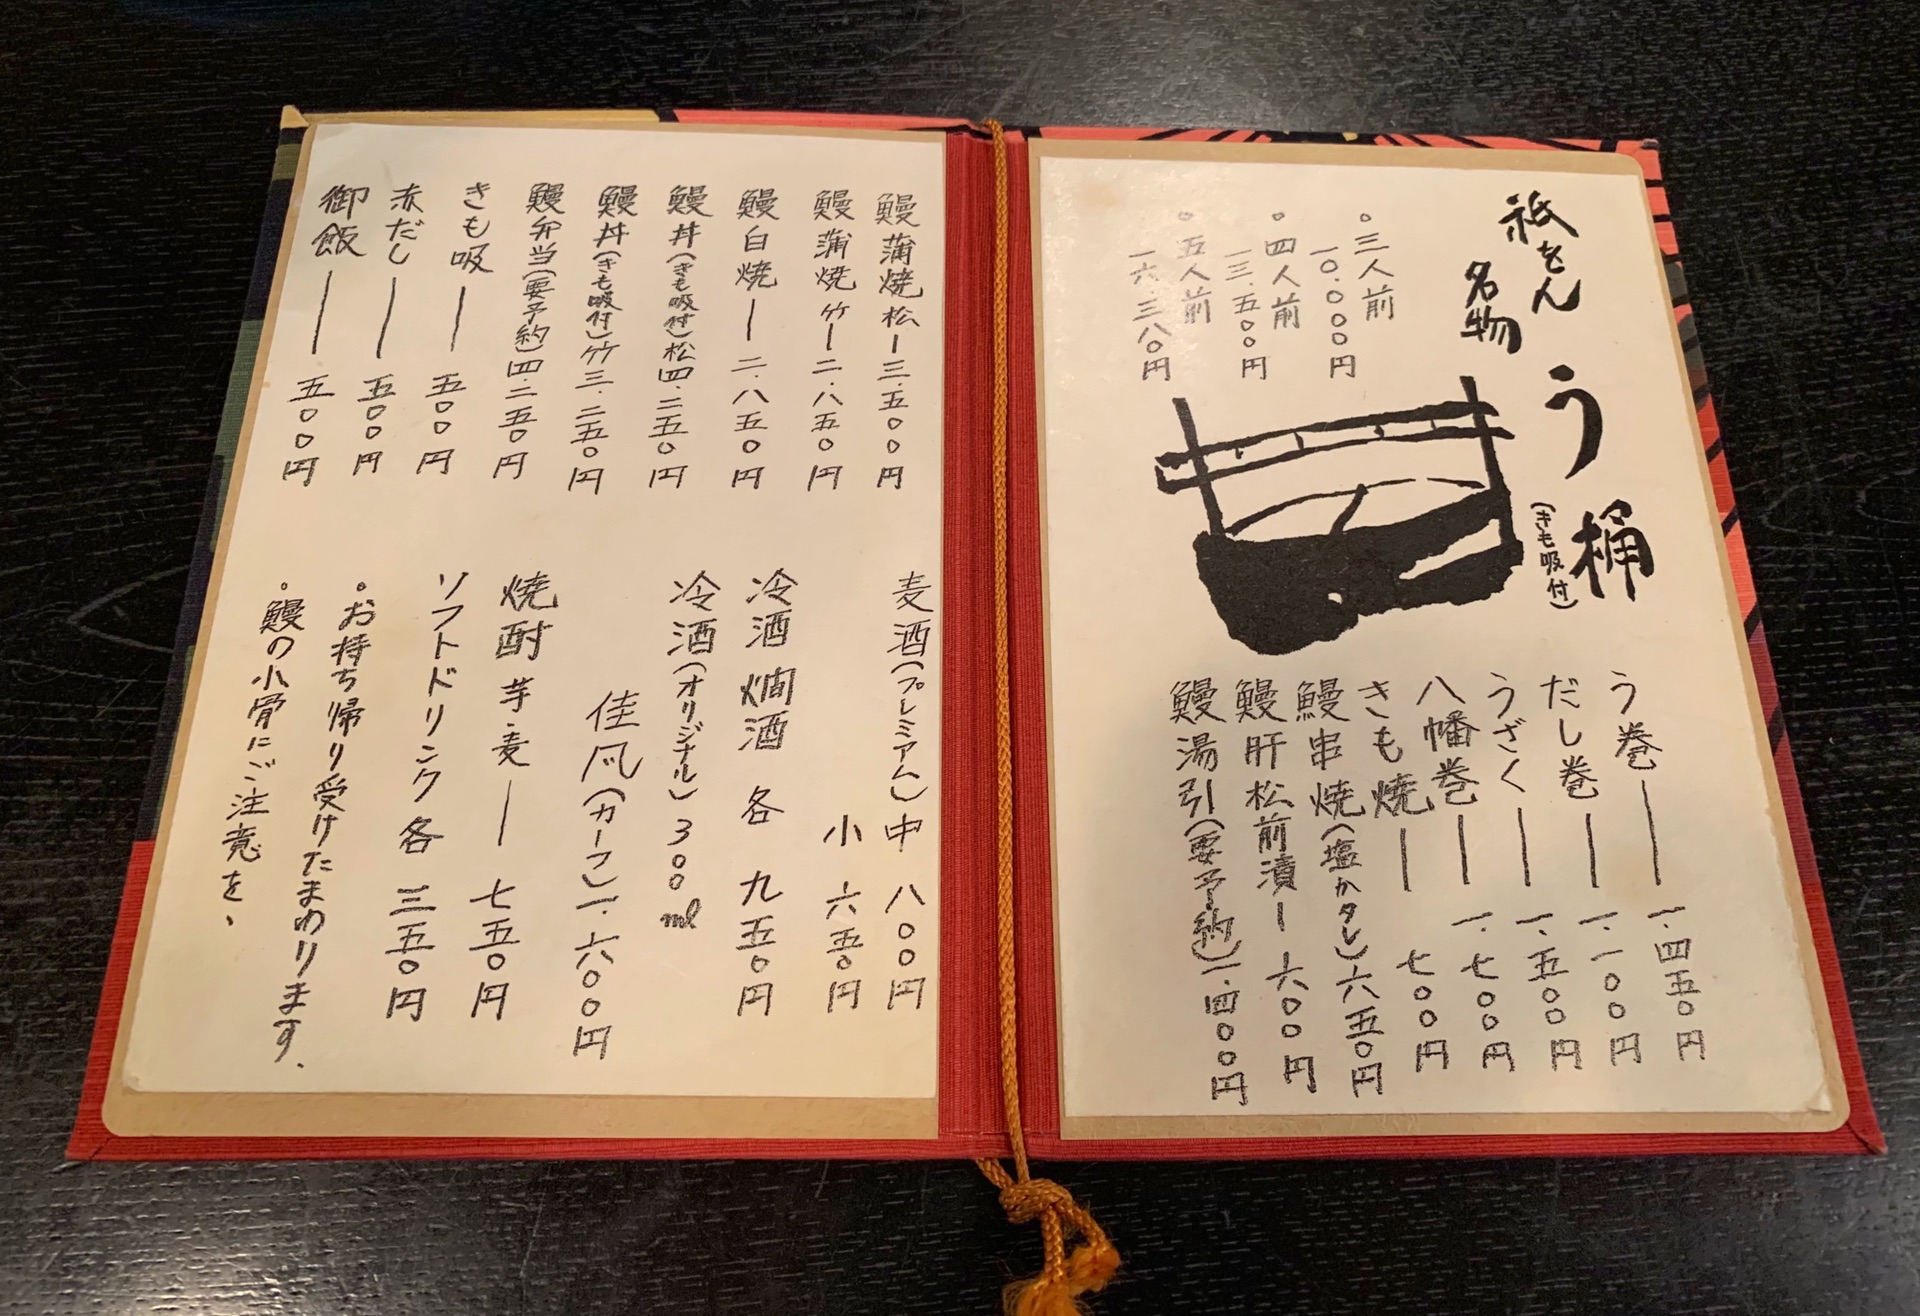 祇をん
名物
う桶
(きも吸付)
。三人前
一〇.〇〇〇円
。四人前
一三.五〇〇円
。五人前
一六.三八〇円
う巻― 一.四五〇円
だし巻― 一.一〇〇円
うざく― 一.五〇〇円
八幡巻― 一.七〇〇円
きも焼― 七〇〇円
鰻串焼(塩かタレ)六五〇円
鰻肝松前漬― 六〇〇円
鰻湯引(要予約)一.四〇〇円
鰻蒲焼松― 三.五〇〇円
鰻蒲焼竹― 二.八五〇円
鰻白焼― 二.八五〇円
鰻丼(きも吸付)松四.二五〇円
鰻丼(きも吸付)竹三.二五〇円
鰻弁当(要予約)四.二五〇円
きも吸― 五〇〇円
赤だし― 五〇〇円
御飯― 五〇〇円
麦酒(プレミアム)中 八〇〇円
小 六五〇円
冷酒 燗酒 各 九五〇円
冷酒(オリジナル)300ml
佳凨(カーフー)一.六〇〇円
焼酎 芋・麦― 七五〇円
ソフトドリンク各 三五〇円
。お持ち帰り受けたまわります.
。鰻の小骨にご注意を、